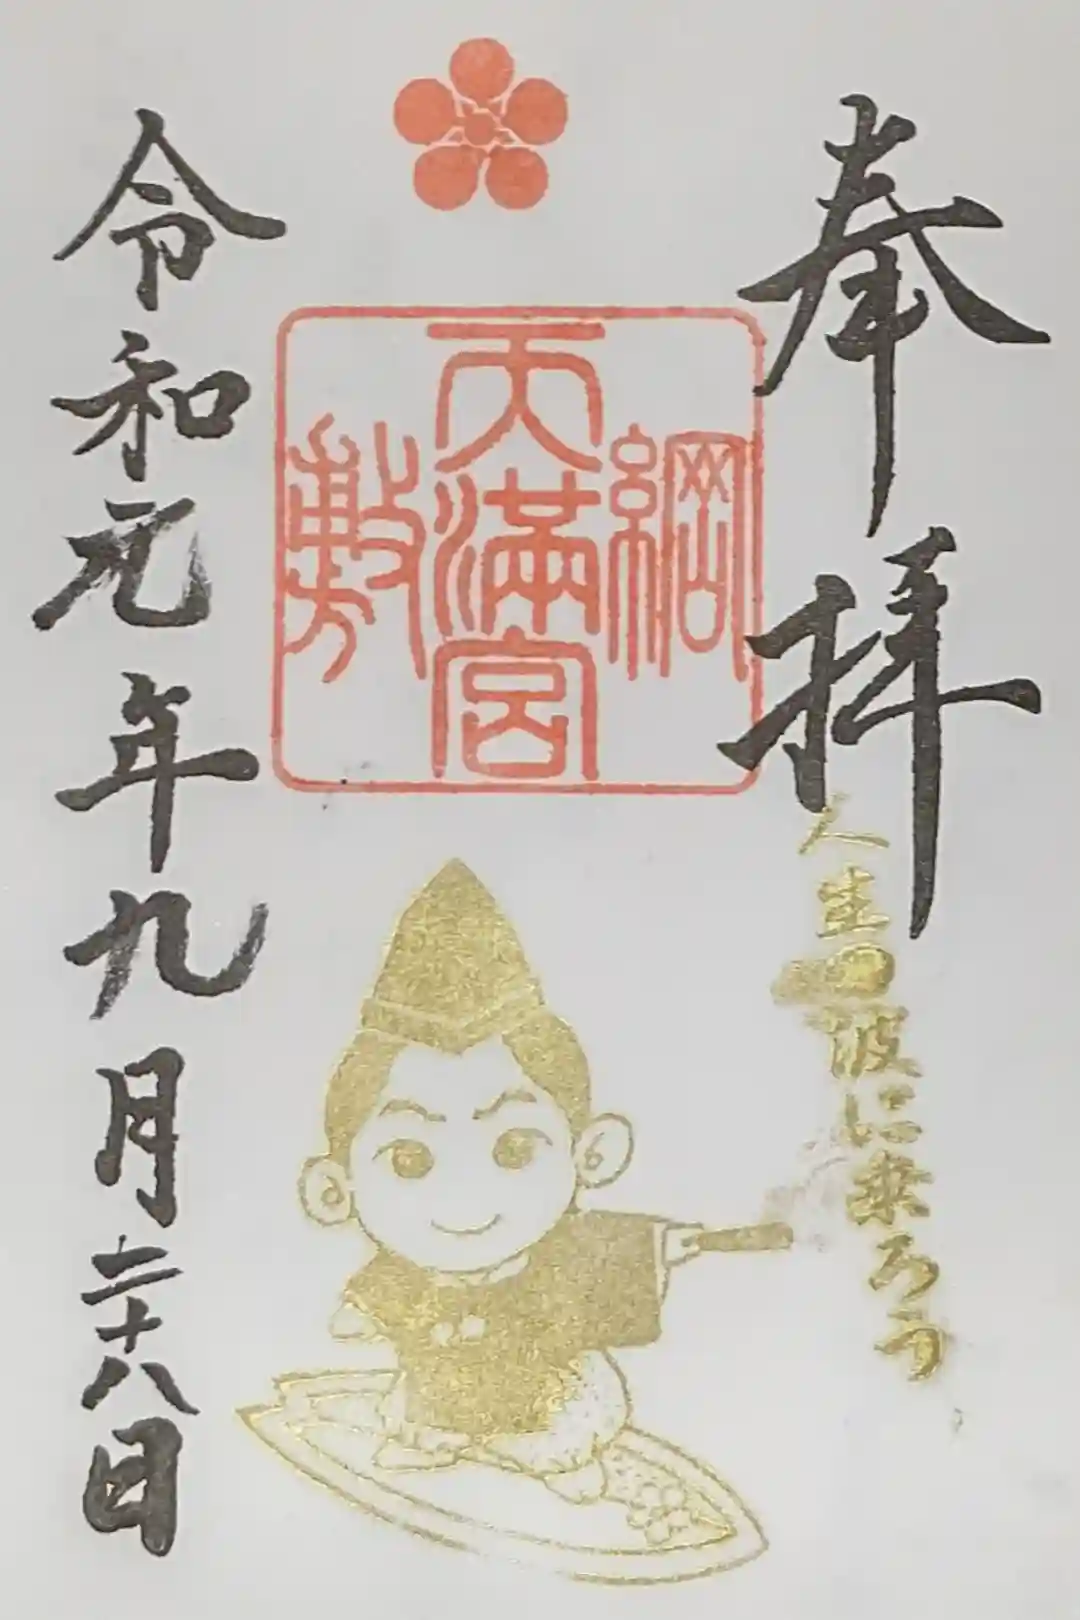 奉拝
人生の波に乗ろう
綱
天満宮
敷
令和元年九月二十八日